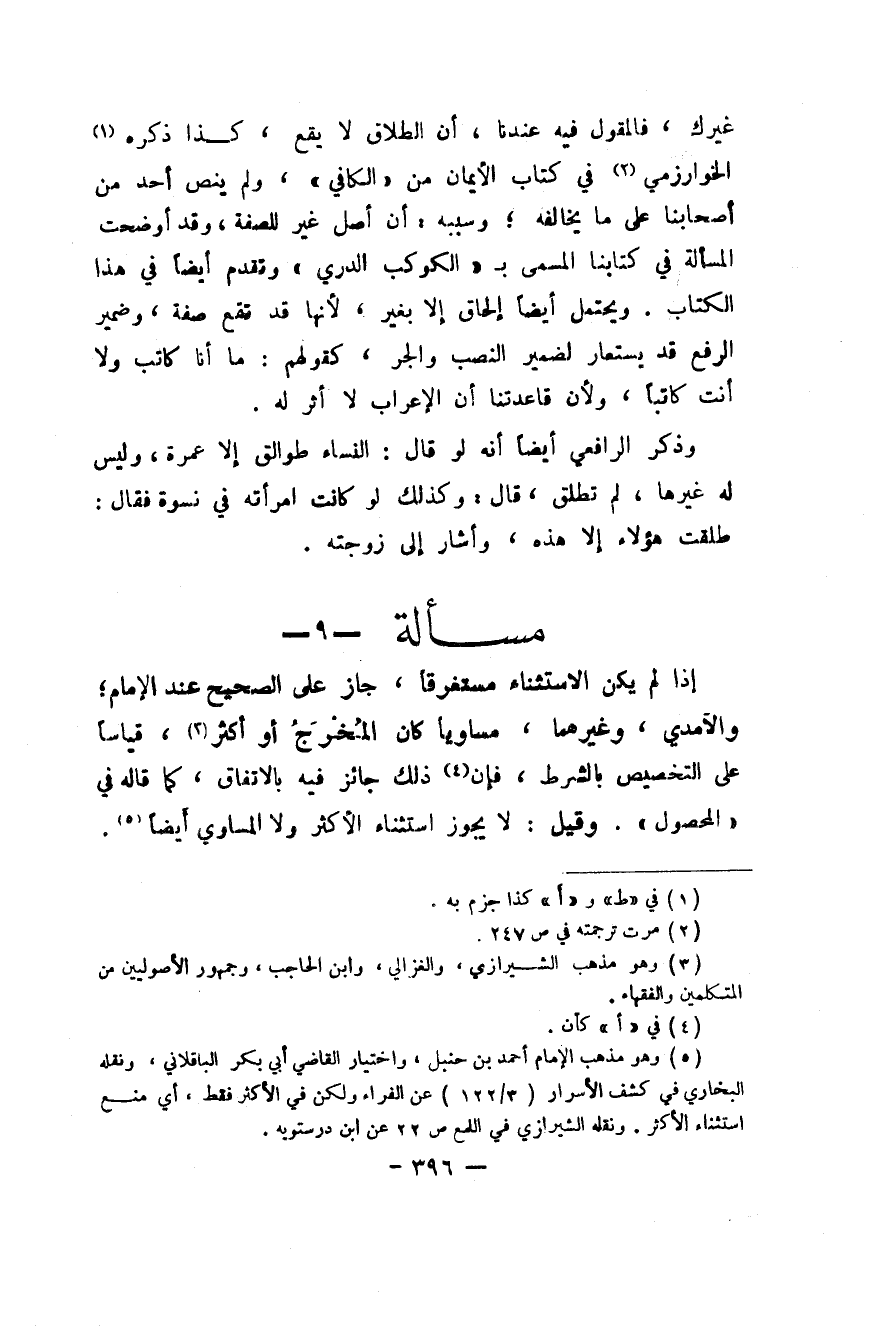 غيرك ، فالمقول فيه عندنا ، أن الطلاق لا يقع ، كـــذا ذكره (١)
الخوارزمي (٢) في كتاب الأيمان من «الكافي» ، ولم ينص أحد من
أصحابنا على ما يخالفه ؛ وسببه : أن أصل غير للصفة ، وقد أوضحت
المسألة في كتابنا المسمى بـ « الكوكب الدري » وتقدم أيضاً في هذا
الكتاب . ويحتمل أيضاً إلحاق إلا بغير ، لأنها قد تقع صفة ، وضمير
الرفع قد يستعار لضمير النصب والجر ، كقولهم : ما أنا كانت ولا
أنت كاتباً ، ولأن قاعدتنا أن الإعراب لا أثر له .
وذكر الرافعي أيضاً أنه لو قال : النساء طوالق إلا عمرة ، وليس
له غيرها ، لم تطلق ، قال : وكذلك لو كانت امرأته في نسوة فقال :
طلقت هؤلاء إلا هذه ، وأشار إلى زوجته .
مســـــألة —٩—
إذا لم يكن الاستثناء مستغرقاً ، جاز على الصحيح عند الإمام؛
والآمدي ، وغيرهما ، مساوياً كان المُخْرَجُ أو أكثر (٣) ، قياساً
على التخصيص بالشرط ، فإن(٤) ذلك جائز فيه بالاتفاق ، كما قاله في
«المحصول» . وقيل : لا يجوز استثناء الأكثر ولا المساوي أيضاً (٥) .
(١) في «ط» و «أ» كذا جزم به .
(٢) مرت ترجمته في ص ٢٤٧ .
(٣) وهو مذهب الشـــيرازي ، والغزالي ، وابن الحاجب ، وجمهور الأصوليين من
المتكلمين والفقهاء .
(٤) في « أ » كأن .
(٥) وهو مذهب الإمام أحمد بن حنبل ، واختيار القاضي أبي بكر الباقلاني ، ونقله
البخاري في كشف الأسرار ( ١٢٢/٣ ) عن الفراء ولكن في الأكثر فقط ، أي منـــع
استثناء الأكثر . ونقله الشيرازي في اللمع ص ٢٢ عن ابن درستويه .
— ٣٩٦ -